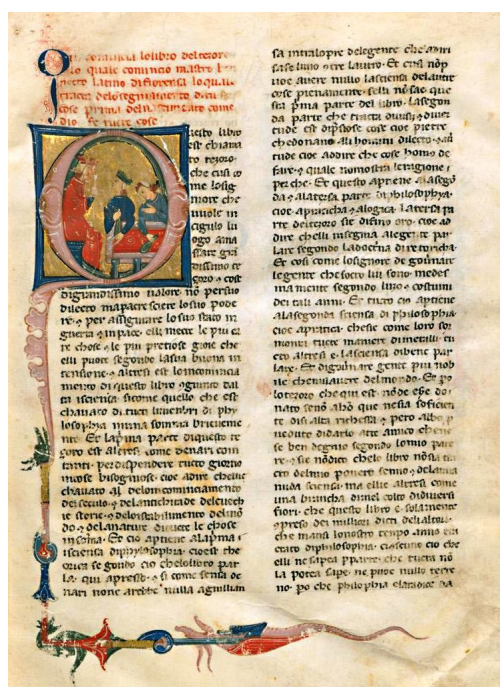 Qui comincia lo libro del tezoro
lo quale comincio maestro bru
necto latino di fiorensa lo quale
tracta del
cose prima del come
dio fe tucte cose
Questo libro
est chiama
to tezoro
che cusi co
me lo sig
nore che
vuole in
cigulo lu
ogo ama
ssare gra
ndissimo te
goro cose
di grandissimo valore no per suo
dilecto ma per acrescere lo suo pode
re & per assigurare lo suo stato in
guerra & in pace elli mecte le piu ca
re chose & le piu pretiose gioie che
elli puote segondo la sua buona in
tensione & altresi est lo incomincia
mento di questo libro
la sciensa sicome quello che est
chamato di tucti li menbri di phy
losophya in una somma brieveme
nte Et la prima parte di questo te
soro est altresi come denari con
tanti per dispendere tucto giorno
in cose bisognose cioe a dire ch
chamato al delo incominciamento
del seculo & del antichitade dele vech
ie storie & delo stabilimento del mo
do & dela natura di tucte le chose
in soma Et cio aptiene ala prima
sciensia di phylosophia cioe
orica segondo cio che lo libro par
la qui apresso & si come sensa de
nari none arebbe nulla
sa intra lopre dele gente che
sase luno
ioe avere nullo la sciensa
cose pienamente selli no sae que
sta prima parte del libro La segon
da parte che tracta di vitii & di ver
tude est di ptiose cose cioe pietre
che donano ali homini dilecto & vir
tude cioe a dire che cose homo de
fare & quale no mostra la ragione
per che Et questo aptiene ala segon
da & ala tersa parte di phylosophya
cioe a praticha & a logica La tersa pa
rte del tezoro sie di fino oro cioe a di
re che lli insegna a le gente par
lare segondo la doctrina di retorica
Et cosi come lo signore de governare
le gente che socto lui sono medes
mamente segondo li uso & costumi
dei tali anni Et tucto cio aptiene
ala segonda sciensa di philosophia
cioe a pratica che sie come loro sor
monta tucte maniere di metalli cu
cto altresi e la sciensa di bene par
lare & di governare gente piu nob
ile che nessuna del mondo Et po
lo tezoro che qui est non de esse do
nato seno a homo che ne sia soficien
te di si alta richessa & pero al bo
ne
se ben degno segondo lo mio pare
re & sie no dico che lo libro no sia tra
cto del mio povero senno & dela mia
nuda sciensa ma elle altresi come
una brancha di mel colto di diversi
fiori che questo libro e solamente
&preso dei miliori dicti
che in ansi lo nostro tempo anno tra
ctato di philosophia ciascuno cio che
elli ne sapea parte che tucta no
la potea sape ne puoe nullo terre
no po che philosophia est radice